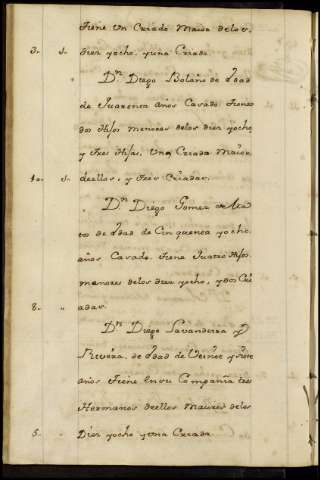 Tiene Un Criado Maior delos
3. 1. diez yocho, yuna Criada
Dn. Diego Bolaño de Edad
de Quarenta años Casado Tiene
dos Hijos menores delos diez yocho
y Tres Hijas, Una Criada Maior
1. deellos, y Tres Criadas.
Dn. Diego Gomez
de Edad de Cinquenta yocho
años Casado Tiene Quatro Hijos
menores delos diez yocho, ydos Cri
8. adas.
Dn. Diego Lavandeira y
Rivera, de Edad de Veinte y siete
años Tiene en su Compañia tres
Hermanos deellos Maiores delos
5. Diez yocho yuna Criada